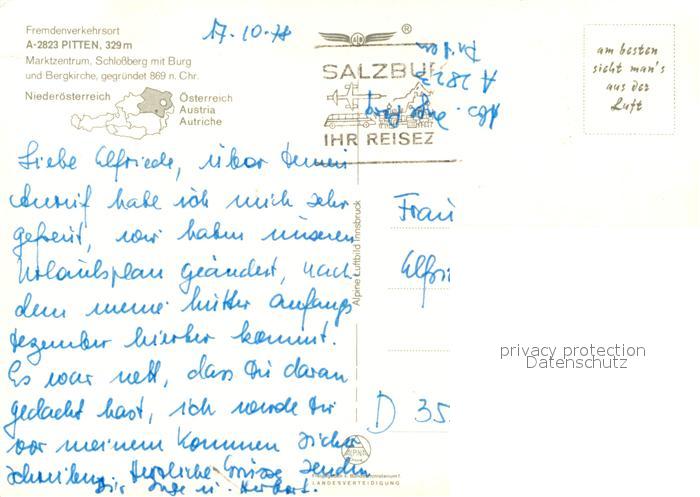 Fremdenverkehrsort
A-2823 PITTEN, 329 m
Marktzentrum, Schloßberg mit Burg
und Bergkirche, gegründet 869 n. Chr.
Niederösterreich
Österreich
Austria
Autriche
17.10.78
®
SALZBUR
IHR REISEZ
A 2823
Pitten
am besten
sieht man's
aus der
Luft
Liebe Elfriede, über deinen
Anruf habe ich mich sehr
gefreut, wir haben unseren
Urlaubsplan geändert, nach
dem meine Mutter anfangs
Dezember hierher kommt.
Es war nett, dass Du daran
gedacht hast, ich werde Dir
vor meinem Kommen sicher
schreiben. Herzliche Grüsse senden
Dir Inge u. Herbert.
Alpine Luftbild Innsbruck
Frau
Elfri
D 35
privacy protection
Datenschutz
ALPINE
LANDESVERTEIDIGUNG